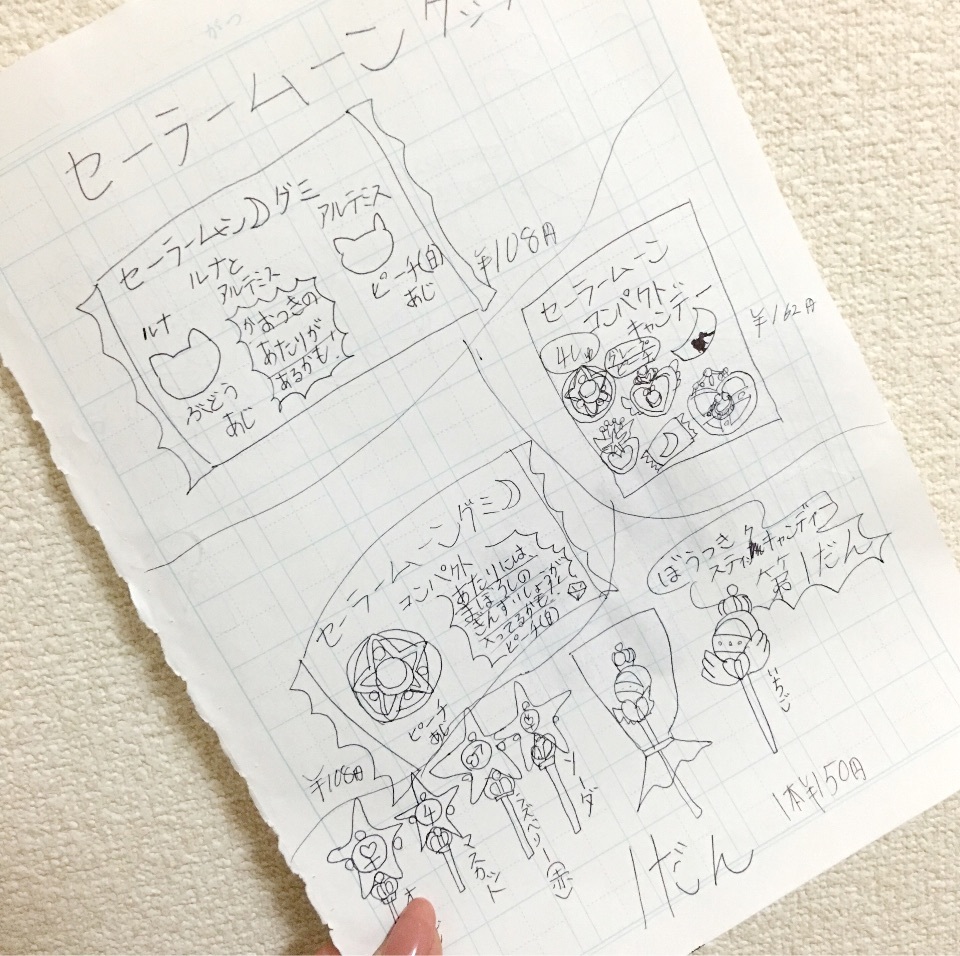 セーラームーン グッ
セーラームーン グミ
ルナと
アルテミス
アルテミス
ルナ
かおつきの
あたりが
あるかも!
ピーチ(白)
あじ
ぶどう
あじ
¥108円
セーラームーン
コンパクト
キャンデー
4しゅ
グレープ
¥162円
セーラームーングミ
コンパクト
あたりには、
まぼろしの
ぎんずいしょうが
入ってるかも!
ピーチ(白)
ピーチ
あじ
¥108円
ぼうつき
スティックキャンディー
第1だん
いちご
ソーダ
ラズベリー(赤)
マスカット
1本¥150円
1だん